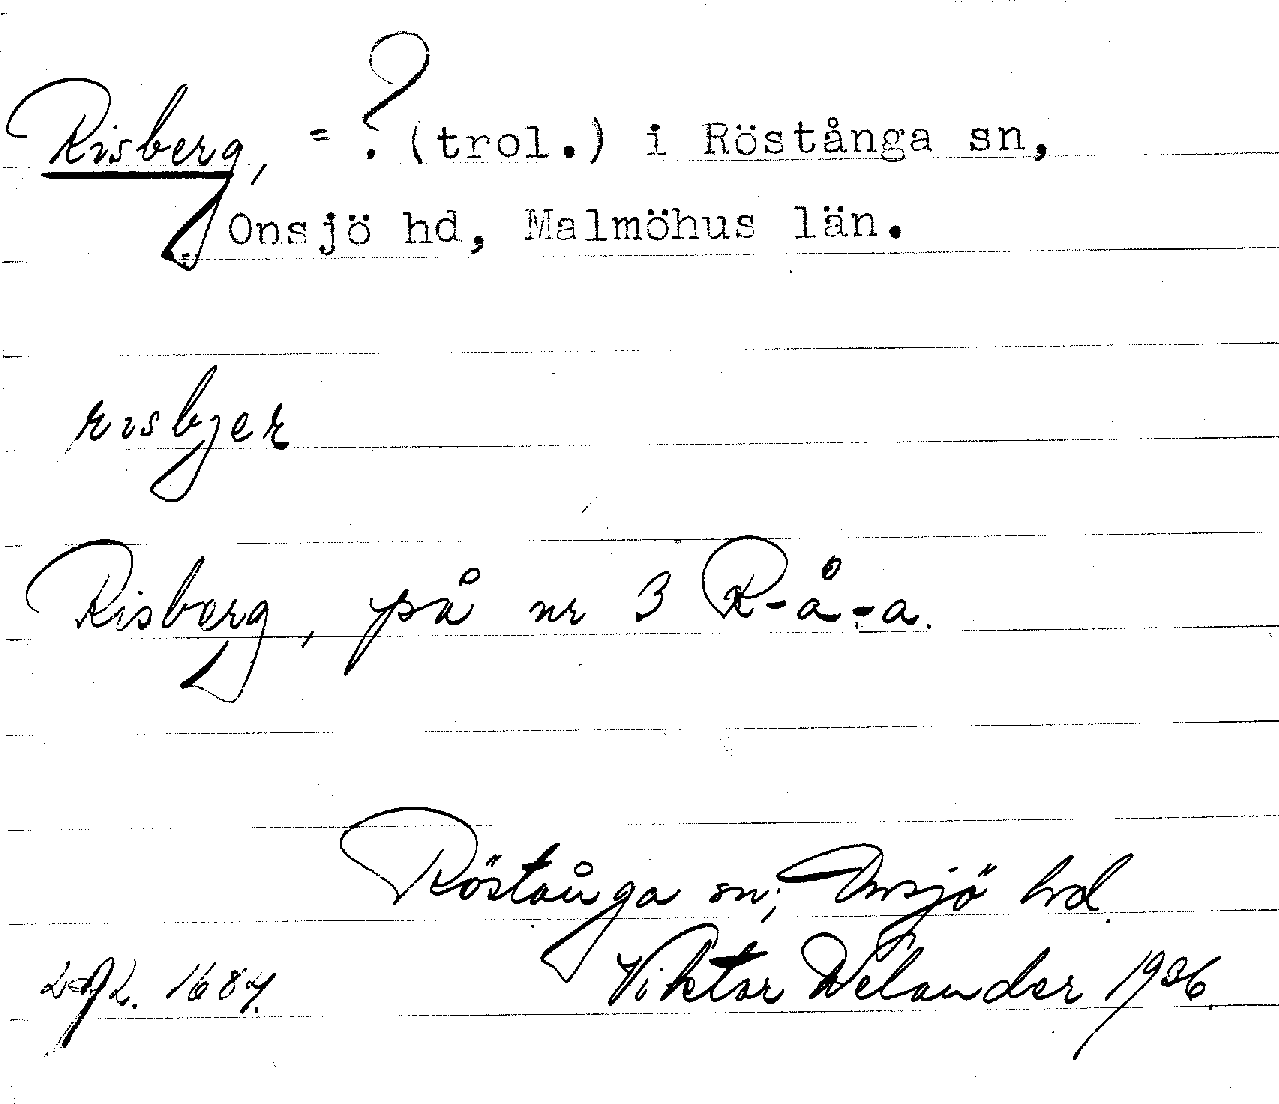 Risberg, = ? (trol.) i Röstånga sn,
Onsjö hd, Malmöhus län.
risbjer
Risberg, på nr 3 R-å-a.
Röstånga sn, Onsjö hd.
1684. Viktor Welander 1936.